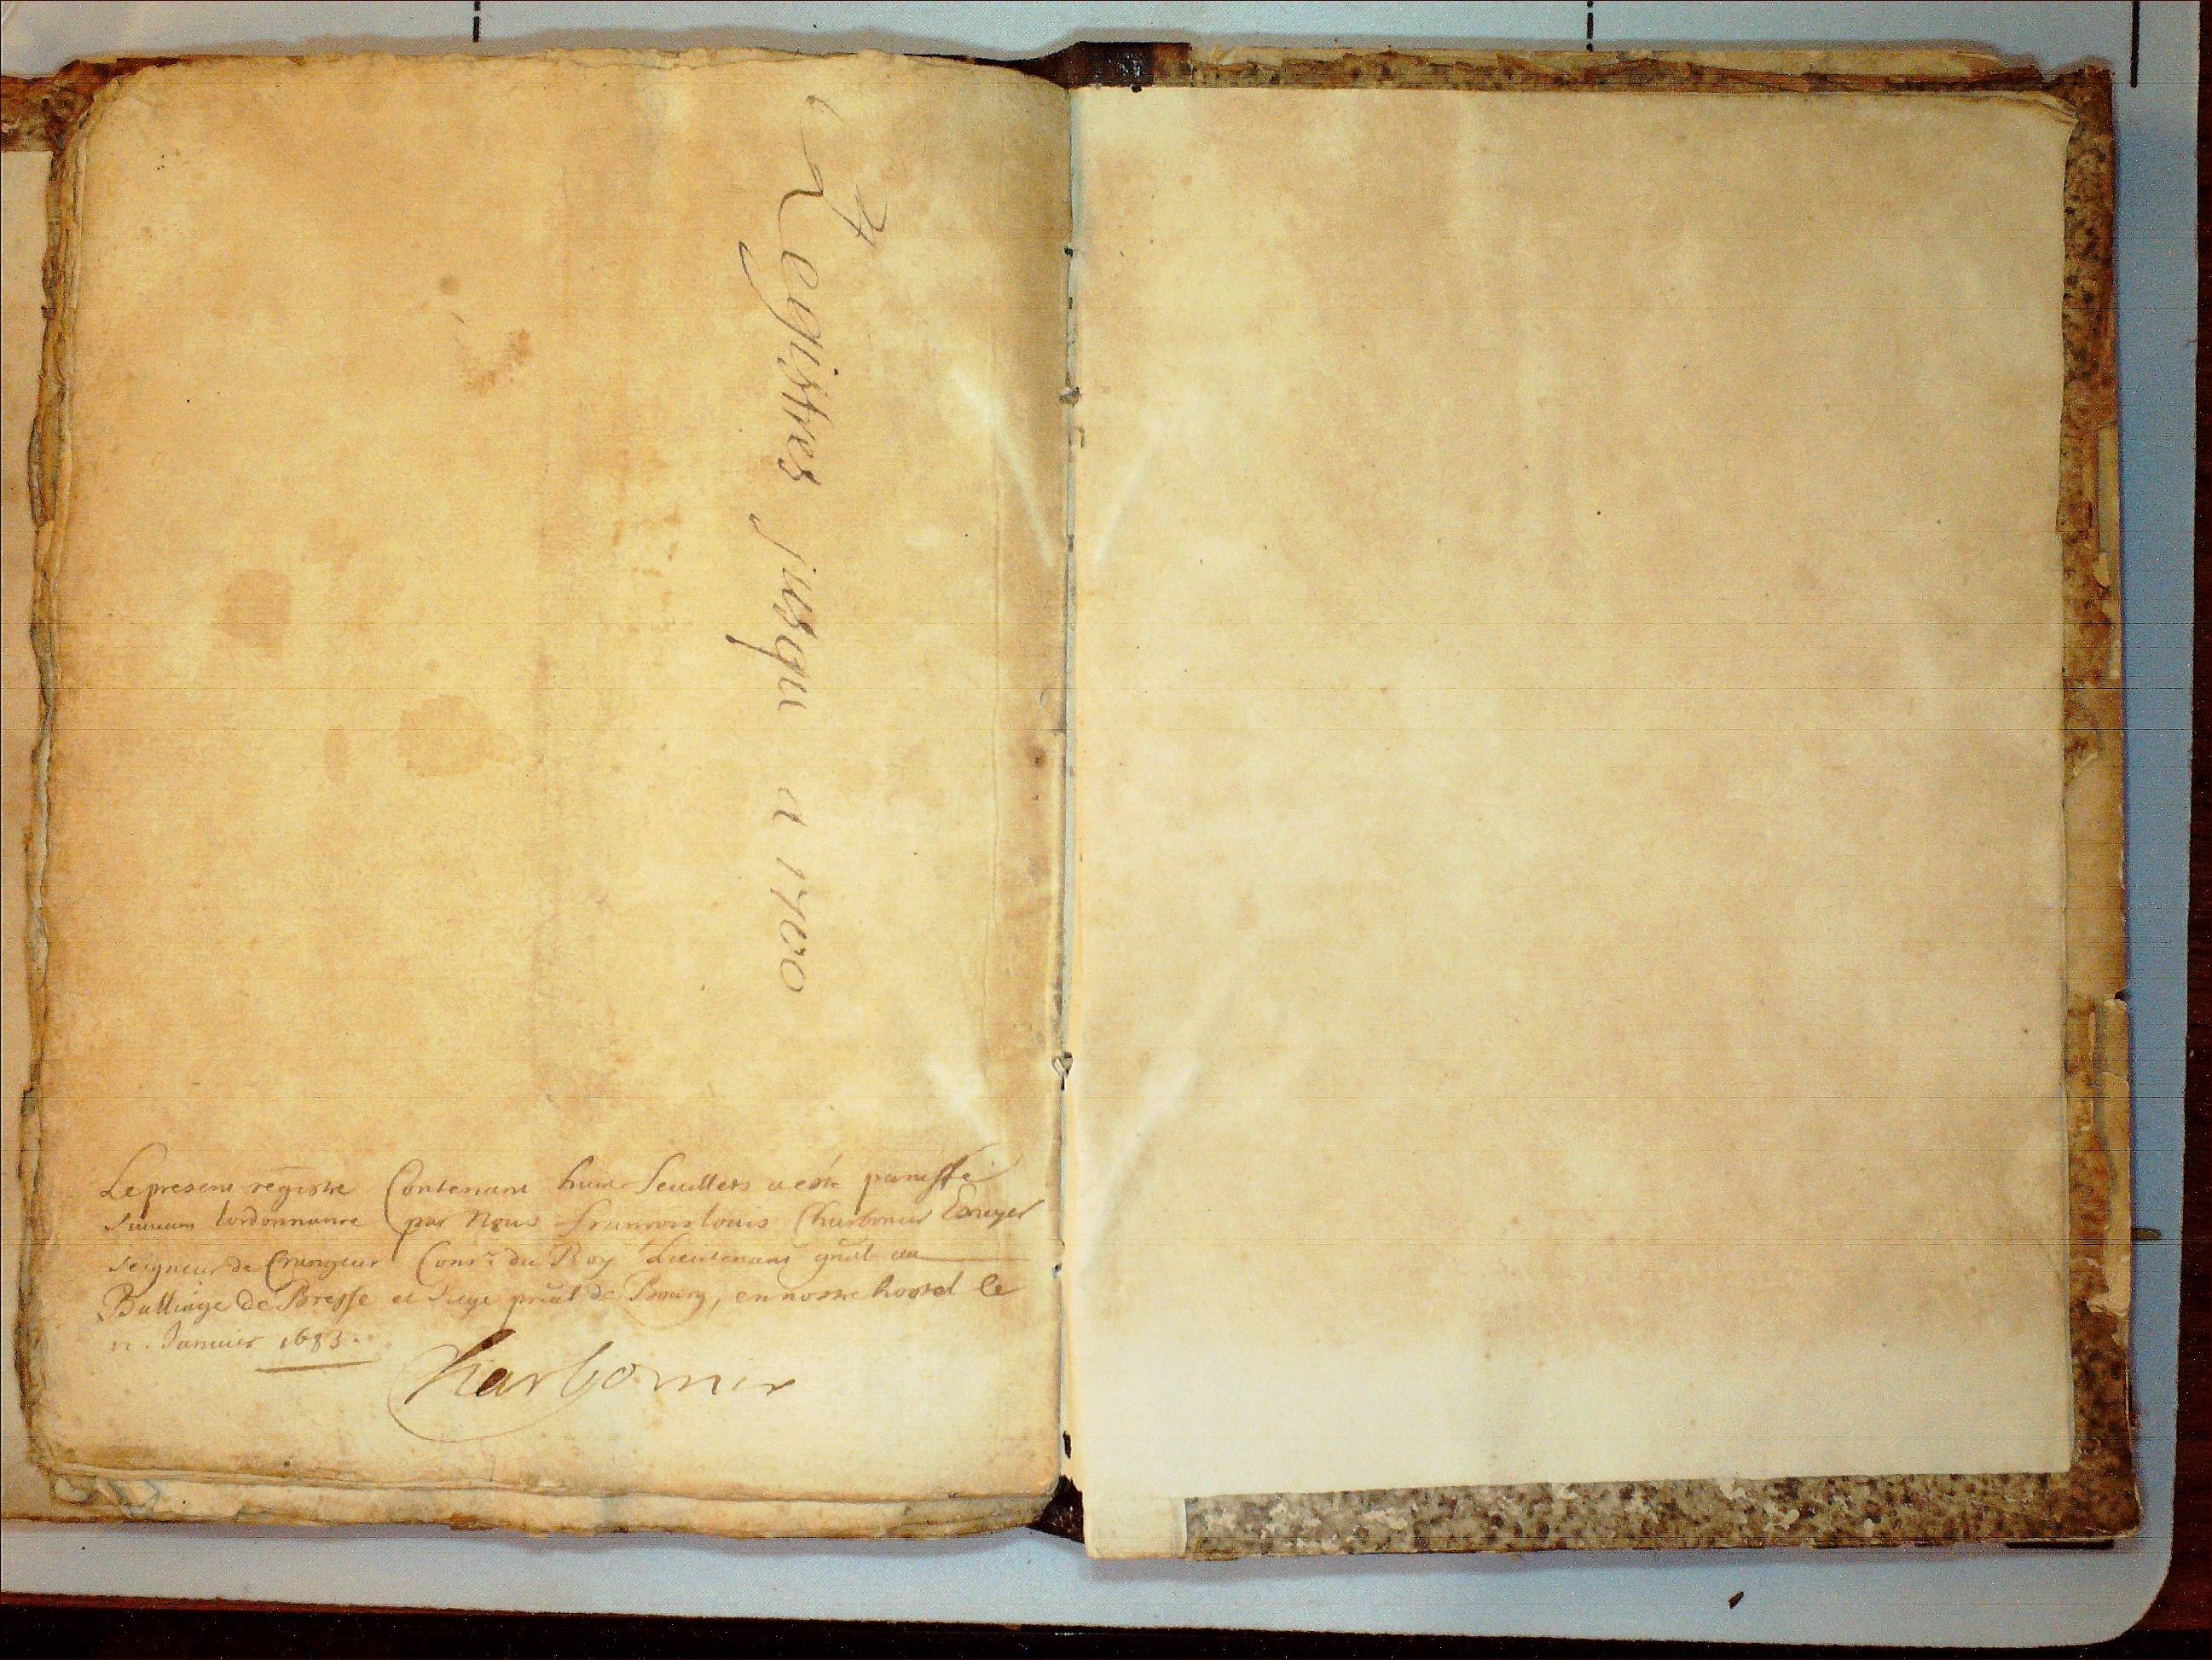 Registres jusqu a 1700
Le present registre Contenant huit feuillets a esté paraffé
suivant lordonnance par Nous francois louis Charbonier Escuyer
seigneur de Crangeat Consr. du Roy Lieutenant gñal au
Balliage de Bresse et siege pñal de Bourg, en nostre hostel le
Janvier 1683.
Charbonier